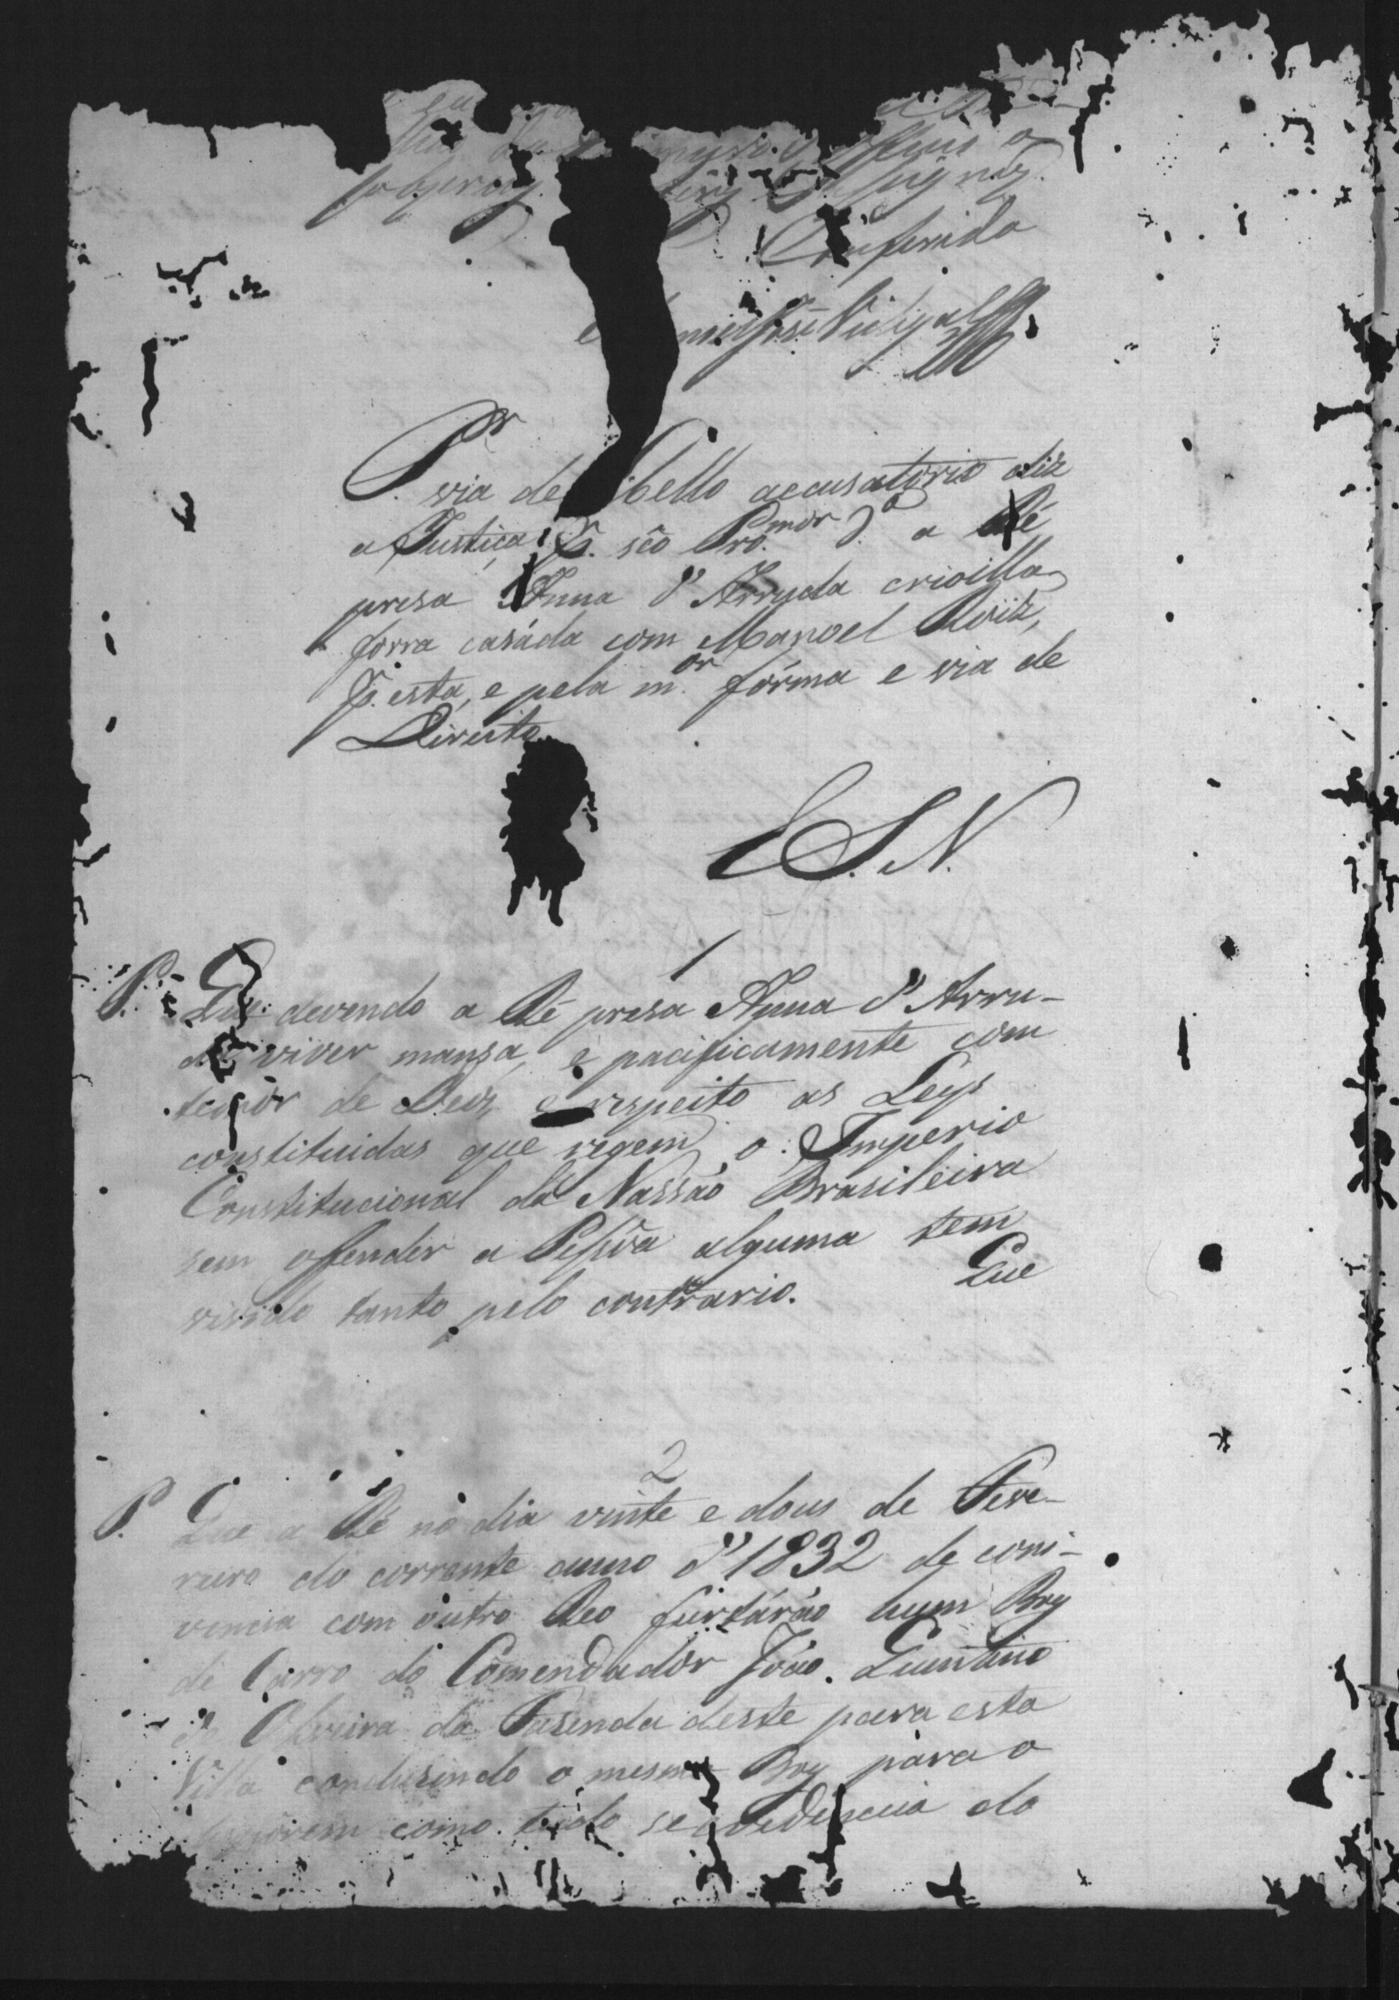 sobscrevy
Conferida
José Vidigal
Por
via de Libello accusatorio diz
a Justiça P.r sêo Pro.mor C.a a Ré
preza Anna d'Arruda crioilla
forra casáda com Manoel Roiz,
P. esta, e pela m.or fórma e via de
Direito
E S. N.
1
P. Que devendo a Ré preza Anna d'Arru-
da viver mansa, e pacificamente com
temôr de Deos, e respeito as Leys
constituidas que regem o Imperio
Constitucional da Nassão Brasileira
sem offender a Pessôa alguma tem
vivido tanto pelo contrario. Que
2
P. Que a Ré no dia vinte e dous de Feve-
reiro do corrente anno d'1832 de coni-
vencia com outro Reo furtárão hum Boy
de Carro do Comendador João Quintino
d' Oliveira da Fasenda deste para esta
Villa condusindo o mesmo Boy para o
como tudo se evidencia do